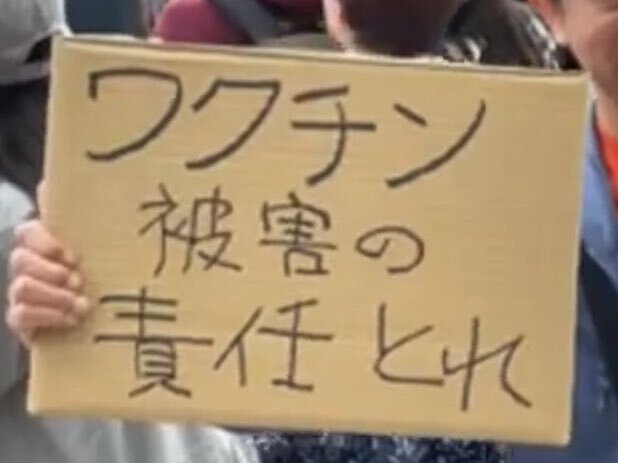 ワクチン
被害の
責任とれ